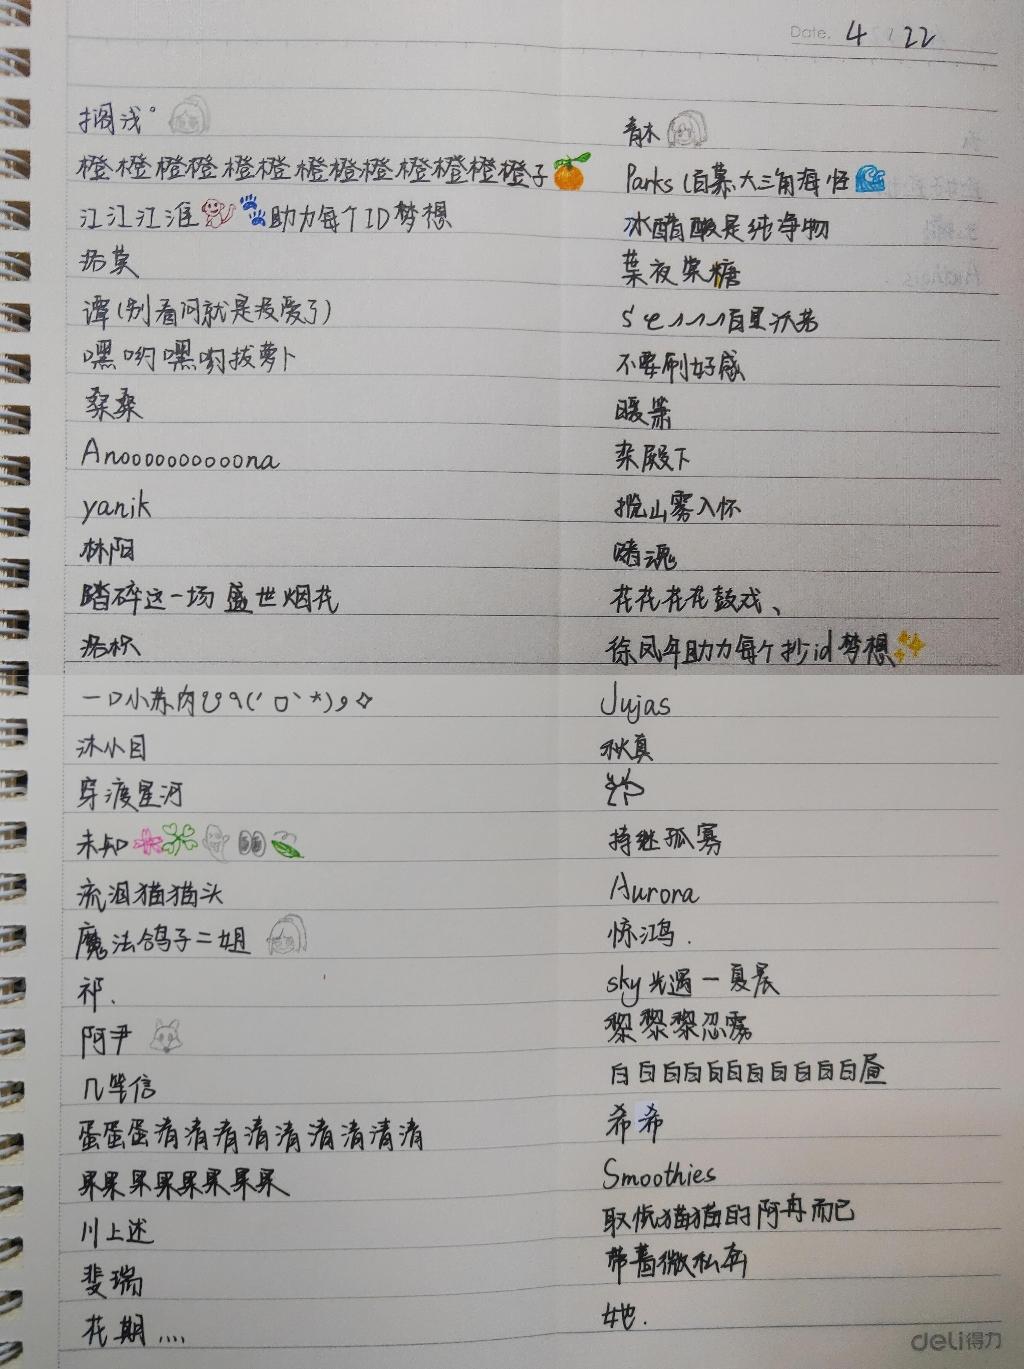 Date. 4 22
搁浅°
橙橙橙橙橙橙橙橙橙橙橙橙橙子
江江江淮 助力每个ID梦想
洛莫
谭(别看问就是没爱了)
嘿哟嘿哟拔萝卜
桑桑
Anoooooooooona
yanik
林阳
踏碎这一场盛世烟花
洛枳
一口小苏肉
沐小目
穿渡星河
未知
流泪猫猫头
魔法鸽子二姐
祁.
阿尹
几笔信
蛋蛋蛋清清清清清清清清清
果果果果果果果果
川上述
斐瑞
花期....
青木
Parks(百慕大三角海怪
冰醋酸是纯净物
葉夜棠糖
百里沃弟
不要刷好感
暖策
柰殿下
揽山雾入怀
赌魂
花花花花鼓戏、
徐凤年助力每个抄id梦想
Jujas
秋真
持继孤雾
Aurora
惊鸿.
sky光遇一夏晨
黎黎黎忍雾
白白白白白白白白白白白昼
希希
Smoothies
取悦猫猫的阿冉而已
带蔷薇私奔
她.
deli得力